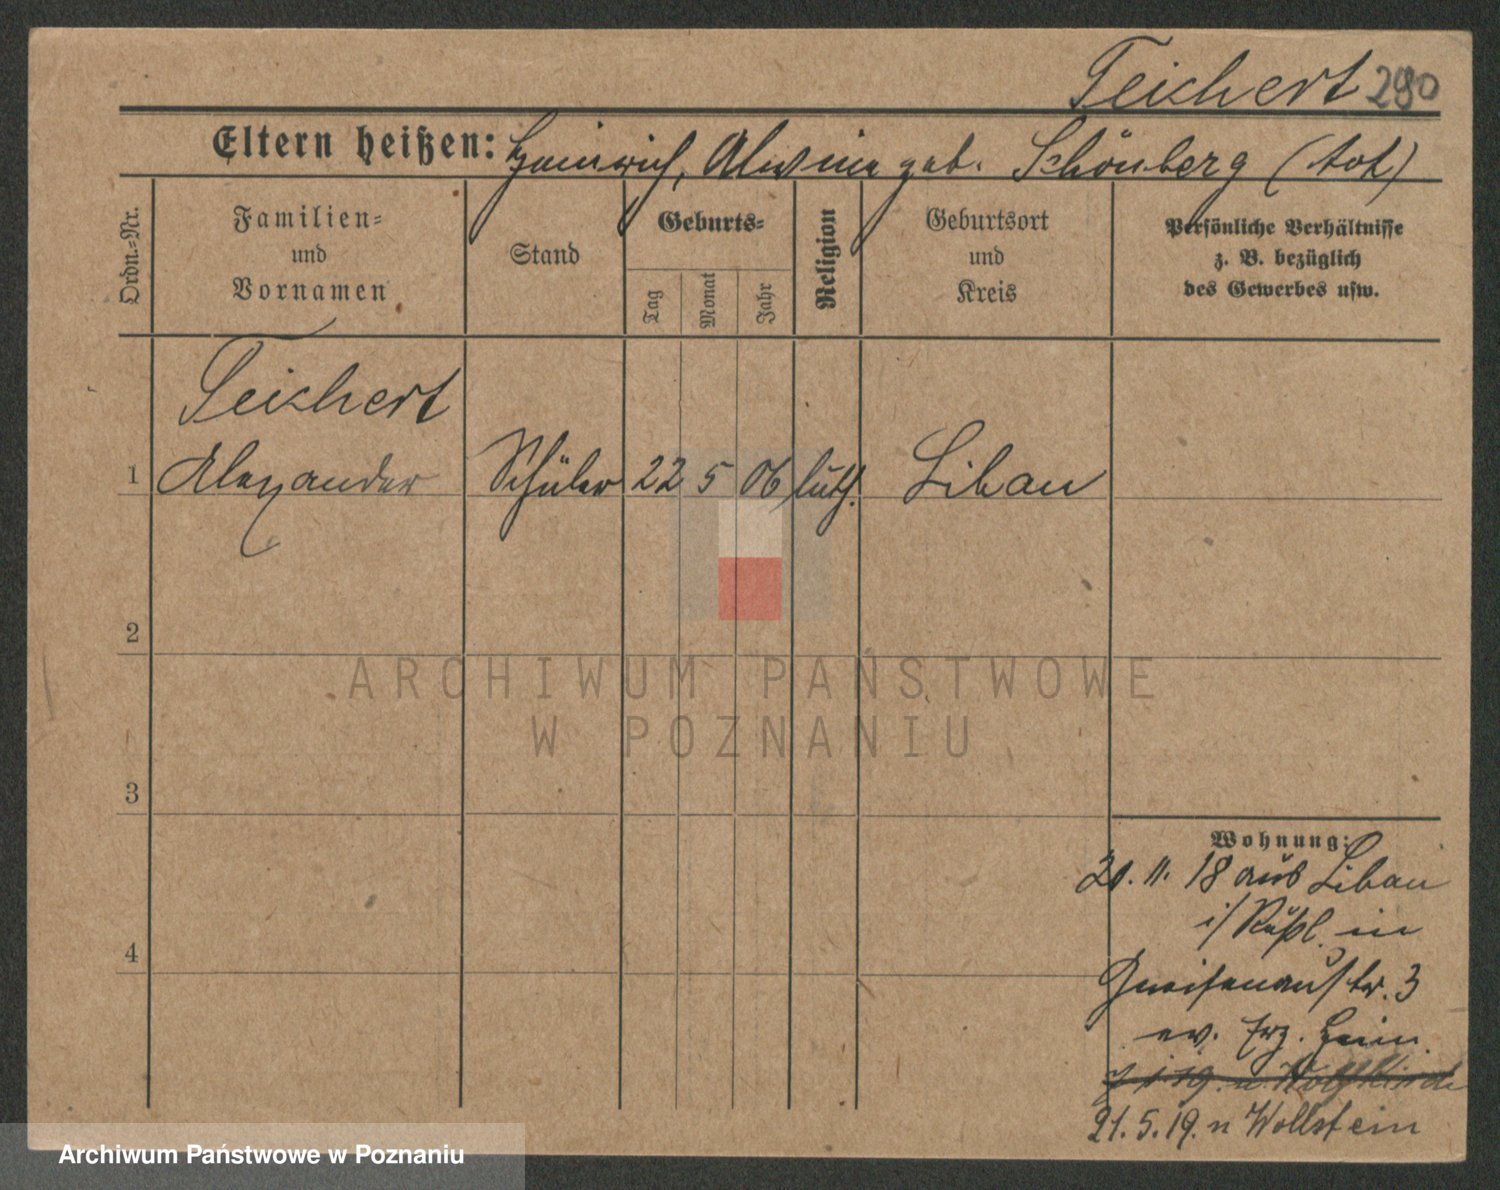 Teichert 290
Eltern heißen: Heinrich, Alwine geb. Schönberg (tot)
Ordn.=Nr.
Familien=
und
Vornamen
Stand
Geburts=
Tag
Monat
Jahr
Religion
Geburtsort
und
Kreis
Persönliche Verhältnisse
z. B. bezüglich
des Gewerbes usw.
Teichert
1 Alexander Schüler 22 5 06 luth. Libau
2
3
4
ARCHIWUM PAŃSTWOWE
W POZNANIU
Wohnung:
20. 11. 18 aus Libau
i/Rußl. in
Gneisenaustr. 3
ev. Erz. Heim
21. 5. 19. n Wollstein
Archiwum Państwowe w Poznaniu